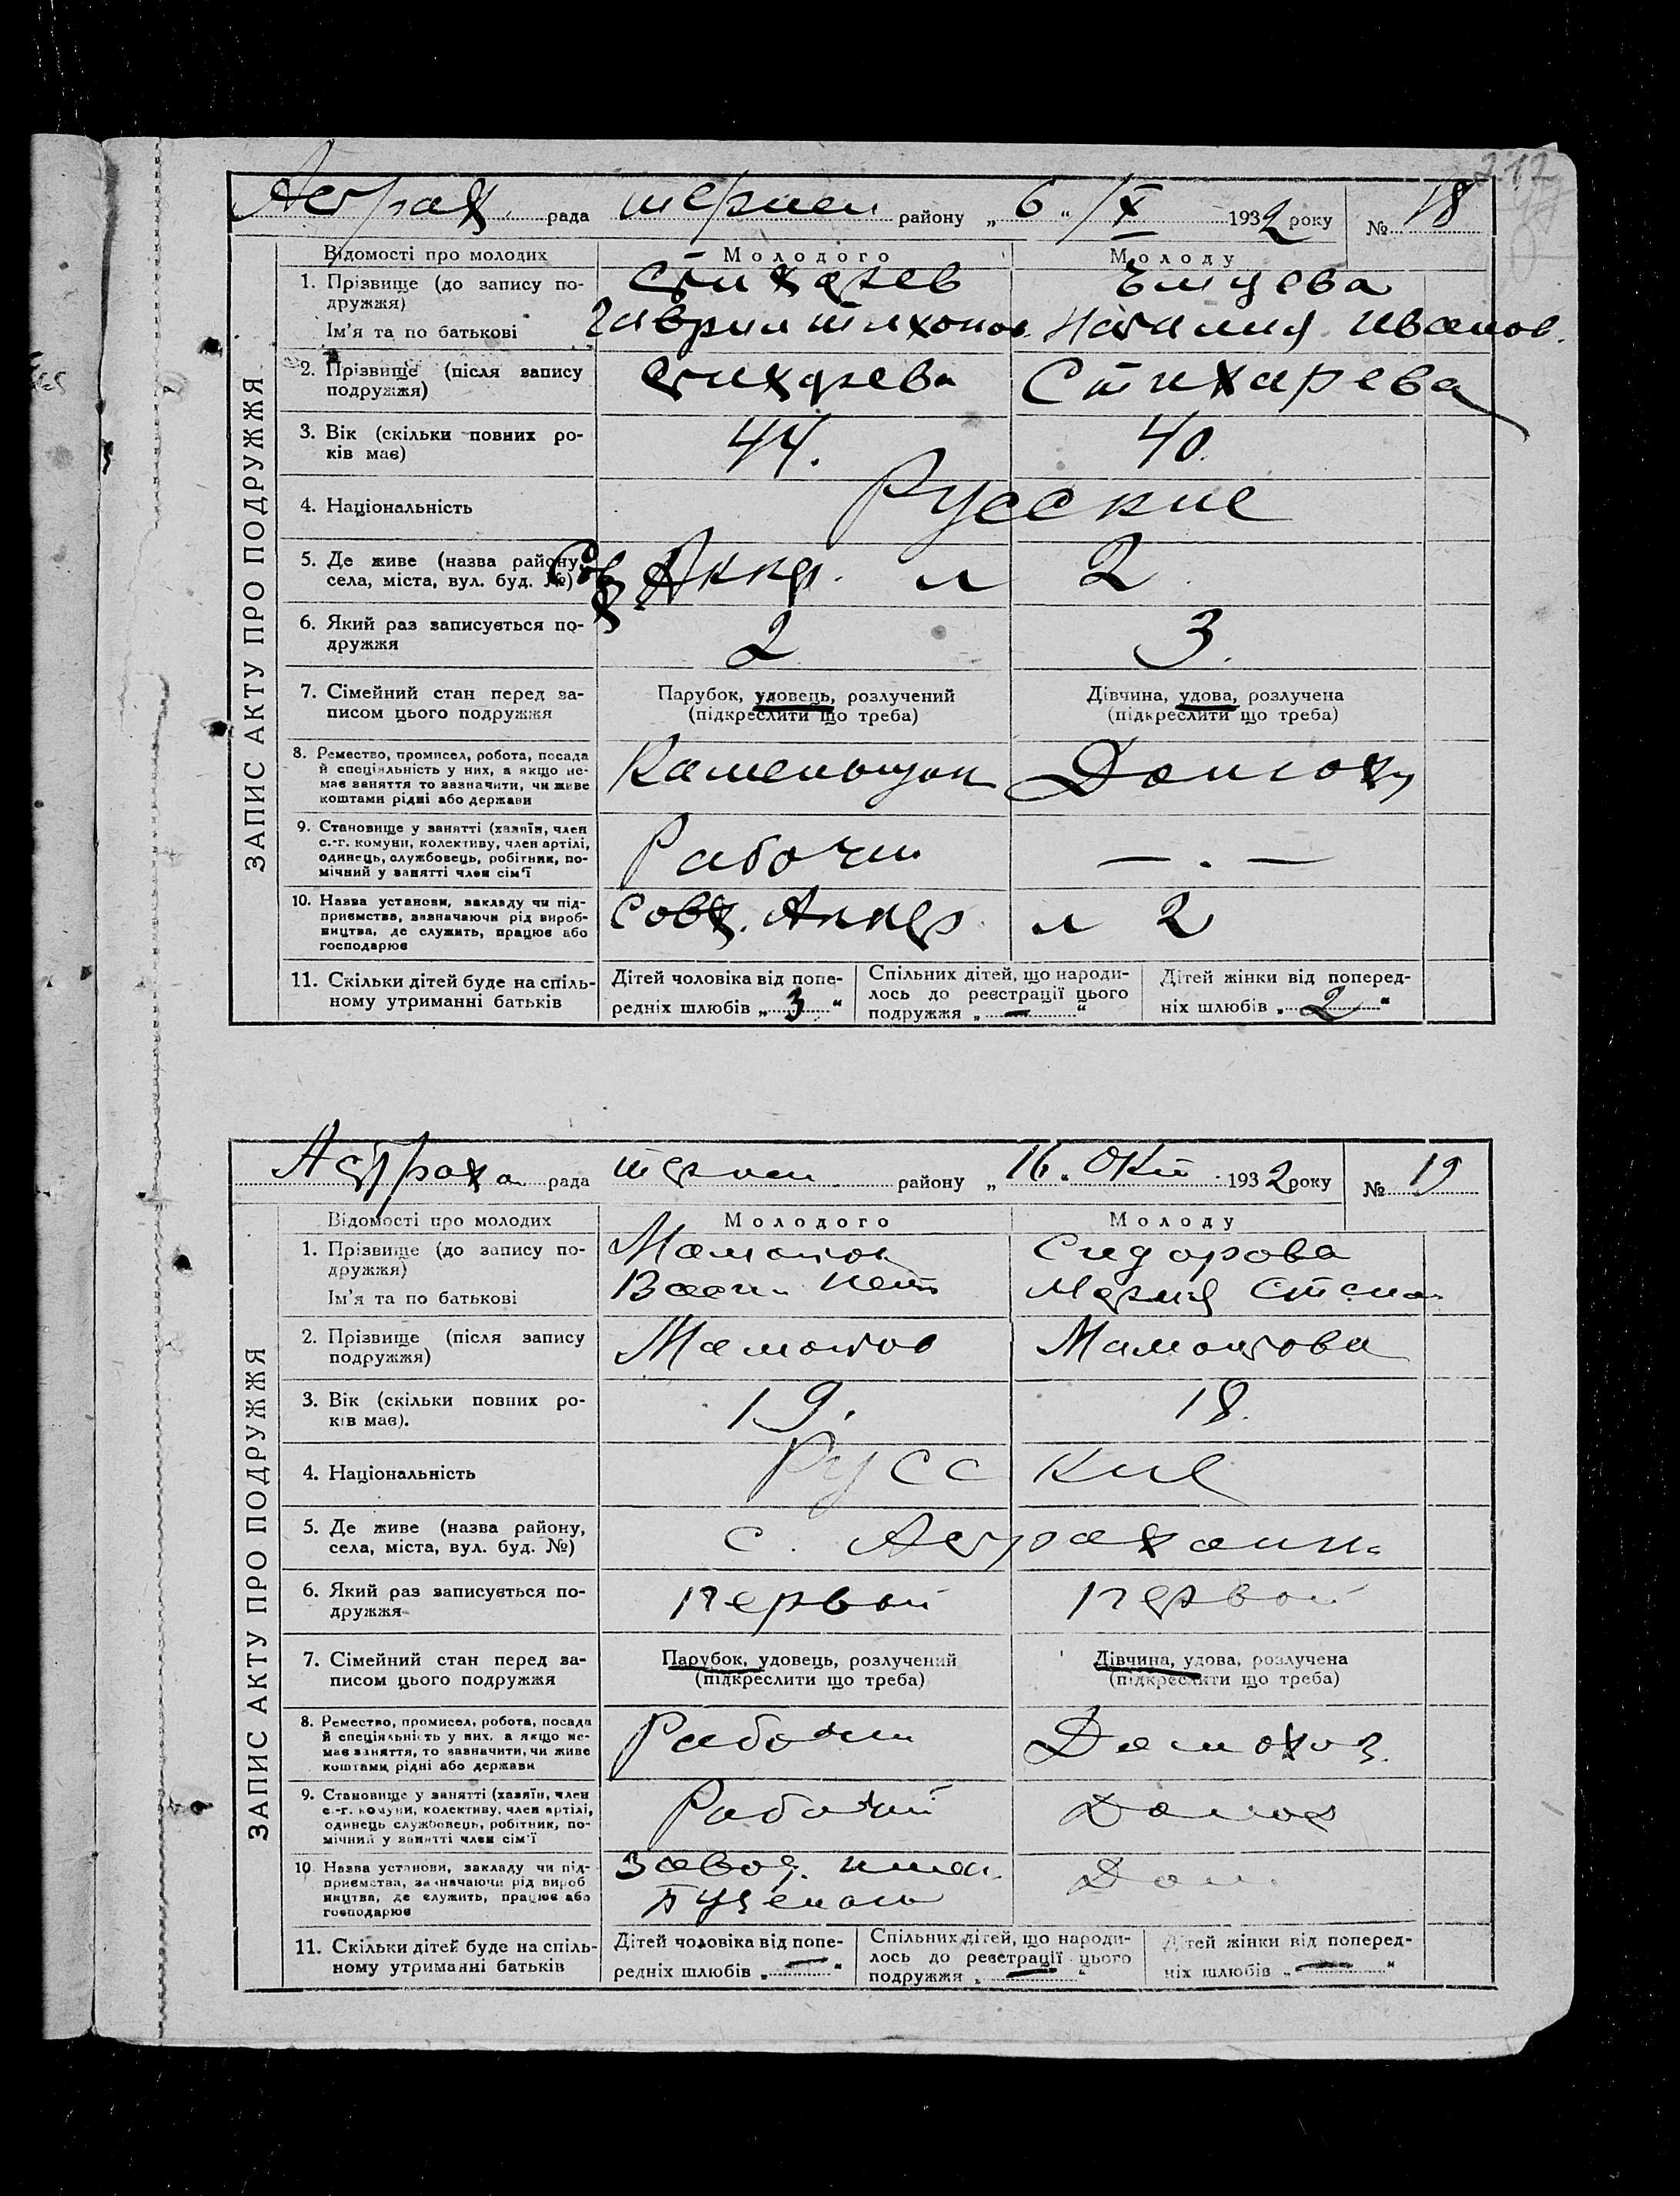 212
Астрах. рада терпен району „ 6 „ /X 1932 року № 18
ЗАПИС АКТУ ПРО ПОДРУЖЖЯ
Відомості про молодих Молодого Молоду
1. Прізвище (до запису по-
дружжя)
Стихарев Емцева
Ім'я та по батькові Гаврил Тихонов. Наталия Иванов.
2. Прізвище (після запису
подружжя)
Стихарева
3. Вік (скільки повних ро-
ків має)
44. 40.
4. Національність Русские
5. Де живе (назва району,
села, міста, вул. буд. №)
2
6. Який раз записується по-
дружжя
2 3.
7. Сімейний стан перед за-
писом цього подружжя
Парубок, удовець, розлучений
(підкреслити що треба)
Дівчина, удова, розлучена
(підкреслити що треба)
8. Ремество, промисел, робота, посада
й спеціяльність у них, а якщо не-
має заняття то зазначити, чи живе
коштами рідні або держави
Каменьщик
9. Становище у занятті (хазяїн, член
с.-г. комуни, колективу, член артілі,
одинець, службовець, робітник, по-
мічний у занятті член сім'ї
Рабочий — . —
10. Назва установи, закладу чи під-
приємства, зазначаючи рід вироб-
ництва, де служить, працює або
господарює
2
11. Скільки дітей буде на спіль-
ному утриманні батьків
Дітей чоловіка від попе-
редніх шлюбів „ 3 “
Спільних дітей, що народи-
лось до реєстрації цього
подружжя „ — “
Дітей жінки від поперед-
ніх шлюбів „ 2 “
Астраха рада терпен району „ 16. Окт. 1932 року № 19
ЗАПИС АКТУ ПРО ПОДРУЖЖЯ
Відомості про молодих Молодого Молоду
1. Прізвище (до запису по-
дружжя)
Мамонтов Сидорова
Ім'я та по батькові Мария Степа
2. Прізвище (після запису
подружжя)
Мамонтов Мамонтова
3. Вік (скільки повних ро-
ків має).
19. 18.
4. Національність Русские
5. Де живе (назва району,
села, міста, вул. буд. №)
с. Астраханка
6. Який раз записується по-
дружжя
первый первый
7. Сімейний стан перед за-
писом цього подружжя
Парубок, удовець, розлучений
(підкреслити що треба)
Дівчина, удова, розлучена
(підкреслити що треба)
8. Ремество, промисел, робота, посада
й спеціяльність у них, а якщо не-
має заняття, то зазначити, чи живе
коштами рідні або держави
Рабочий Домохоз.
9. Становище у занятті (хазяїн, член
с.-г. комуни, колективу, член артілі,
одинець службовець, робітник, по-
мічний у занятті член сім'ї
Рабочий Домох
10 Назва установи, закладу чи під-
приємства, зазначаючи рід вироб
ництва, де служить, працює або
господарює
Завод. Дом.
11. Скільки дітей буде на спіль-
ному утриманні батьків
Дітей чоловіка від попе-
редніх шлюбів „ — “
Спільних дітей, що народи-
лось до реєстрації цього
подружжя „ — “
Дітей жінки від поперед-
ніх шлюбів „ — “